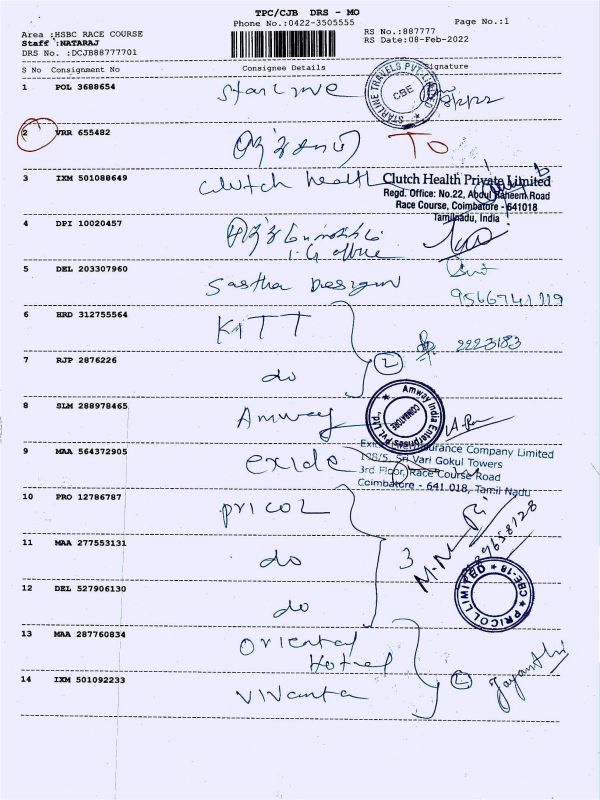 TPC/CJB DRS - MO
Phone No.:0422-3505555
Page No.:1
Area :HSBC RACE COURSE
Staff :NATARAJ
DRS No. :DCJB88777701
RS No.:887777
RS Date:08-Feb-2022
S No Consignment No Consignee Details Signature
1 POL 3688654 Starline
STARLINE TRAVELS PVT LIMITED
CBE
2 VRR 655482 TO
3 IXM 501088649 Clutch health
Clutch Health Private Limited
Regd. Office: No.22, Abdul Raheem Road
Race Course, Coimbatore - 641018
Tamilnadu, India
4 DPI 10020457
I.G office
5 DEL 203307960 Sastha Design
9566741119
6 HRD 312755564 KITT
2223183
7 RJP 2876226 do
8 SLM 288978465 Amway
Amway India Enterprises Pvt. Ltd.
COIMBATORE
9 MAA 564372905 exide
Exide Life Insurance Company Limited
108/5, Sri Vari Gokul Towers
3rd Floor, Race Course Road
Coimbatore - 641 018, Tamil Nadu
10 PRO 12786787 PRICOL
11 MAA 277553131 do 3
12 DEL 527906130 do
PRICOL LIMITED
CBE-18
13 MAA 287760834 Oriental
Hotel
14 IXM 501092233 Vivanta
Jayanthi